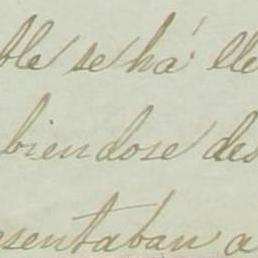 ble se há lle
biendose des
esentaban a